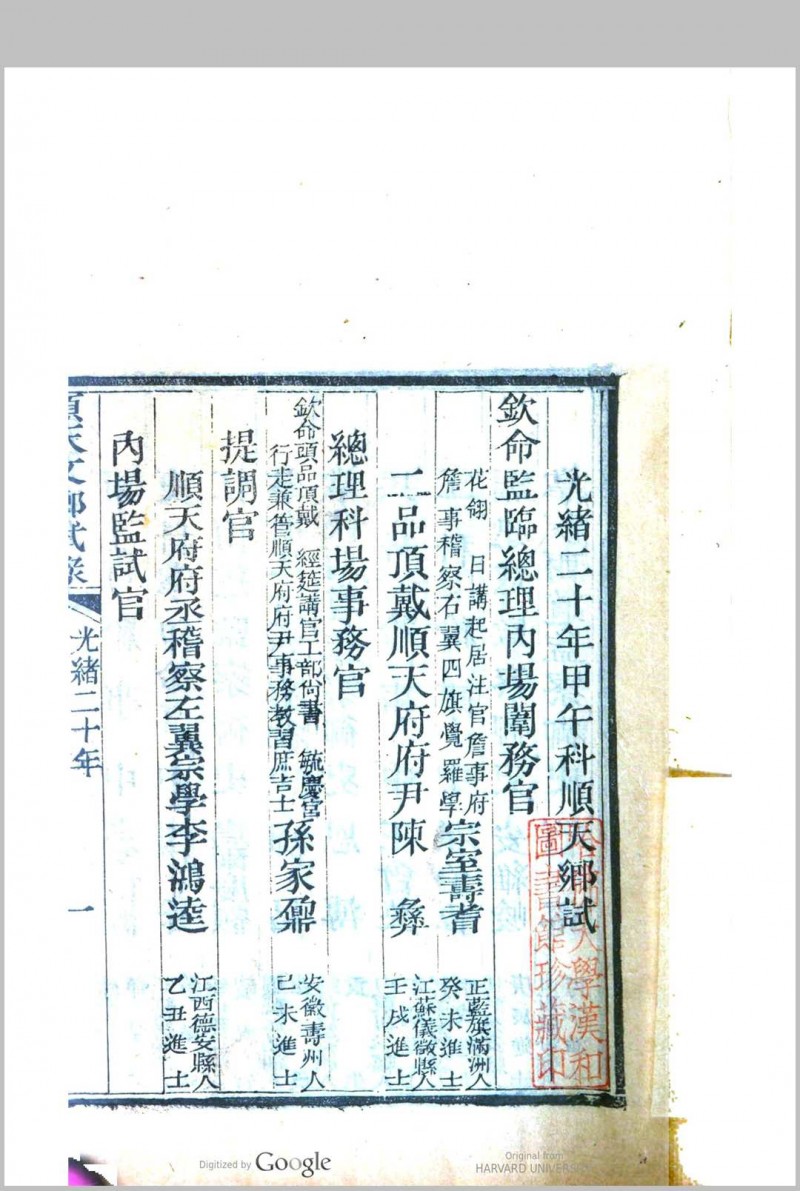 光緒二十年甲午科順天鄉試
欽命監臨總理內場闈務官
花翎　日講起居注官詹事府
詹事稽察右翼四旗覺羅學宗室壽耆
正藍旗滿洲人
癸未進士
二品頂戴順天府府尹陳　彝
江蘇儀徵縣人
壬戌進士
總理科場事務官
欽命頭品頂戴　經筵講官工部尙書　毓慶宮
行走兼管順天府府尹事務敎習庶吉士孫家鼐
安徽壽州人
己未進士
提調官
順天府府丞稽察左翼宗學李鴻逵
江西德安縣人
乙丑進士
內場監試官
順天文鄉試錄
光緒二十年
一
大學漢和
圖書館珍藏印
Digitized by Google
Original from
HARVARD UNIVERSITY